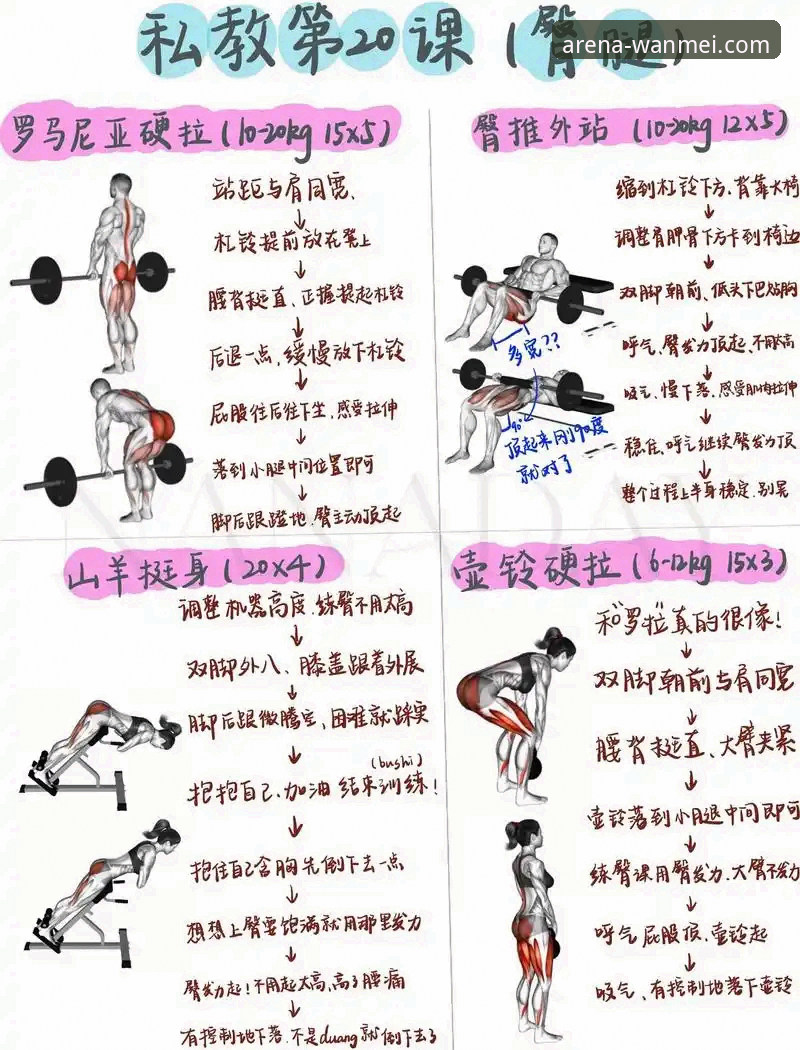 私教第20课(臀腿)
arena-wanmei.com
罗马尼亚硬拉(10-20kg 15x5)
站距与肩同宽、
↓
杠铃提前放在凳上
↓
腰背挺直、正握提起杠铃
↓
后退一点,缓慢放下杠铃
↓
屁股往后往下坐,感受拉伸
↓
落到小腿中间位置即可
↓
脚后跟蹬地、臀主动顶起
臀推外站 (10-20kg 12x5)
缩到杠铃下方、背靠大椅
↓
调整肩胛骨下方卡到椅边
↓
双脚朝前、低头下巴贴胸
↓
呼气、臀发力顶起、不用太高
↓
吸气、慢下落、感受肌肉拉伸
↓
稳住、呼气继续臀发力顶
↓
整个过程上半身稳定、别晃
多宽??
90°
顶起来刚90度
就对了
NANADAY
山羊挺身(20x4)
调整机器高度、练臀不用太高
↓
双脚外八、膝盖跟着外展
↓
脚后跟微腾空、困难就踩实
↓
(bushi)
抱抱自己、加油 结束训练!
↓
抱住自己含胸先倒下去一点
↓
想想上臀要饱满就用那里发力
↓
臀发力起!不用起太高,高了腰痛
↓
有控制地下落、不是duang就倒下去了
壶铃硬拉(6-12kg 15x3)
和"罗拉"真的很像!
↓
双脚朝前与肩同宽
↓
腰背挺直、大臂夹紧
↓
壶铃落到小腿中间即可
↓
练臀课用臀发力、大臂不发力
↓
呼气屁股顶、壶铃起
↓
吸气、有控制地落下壶铃